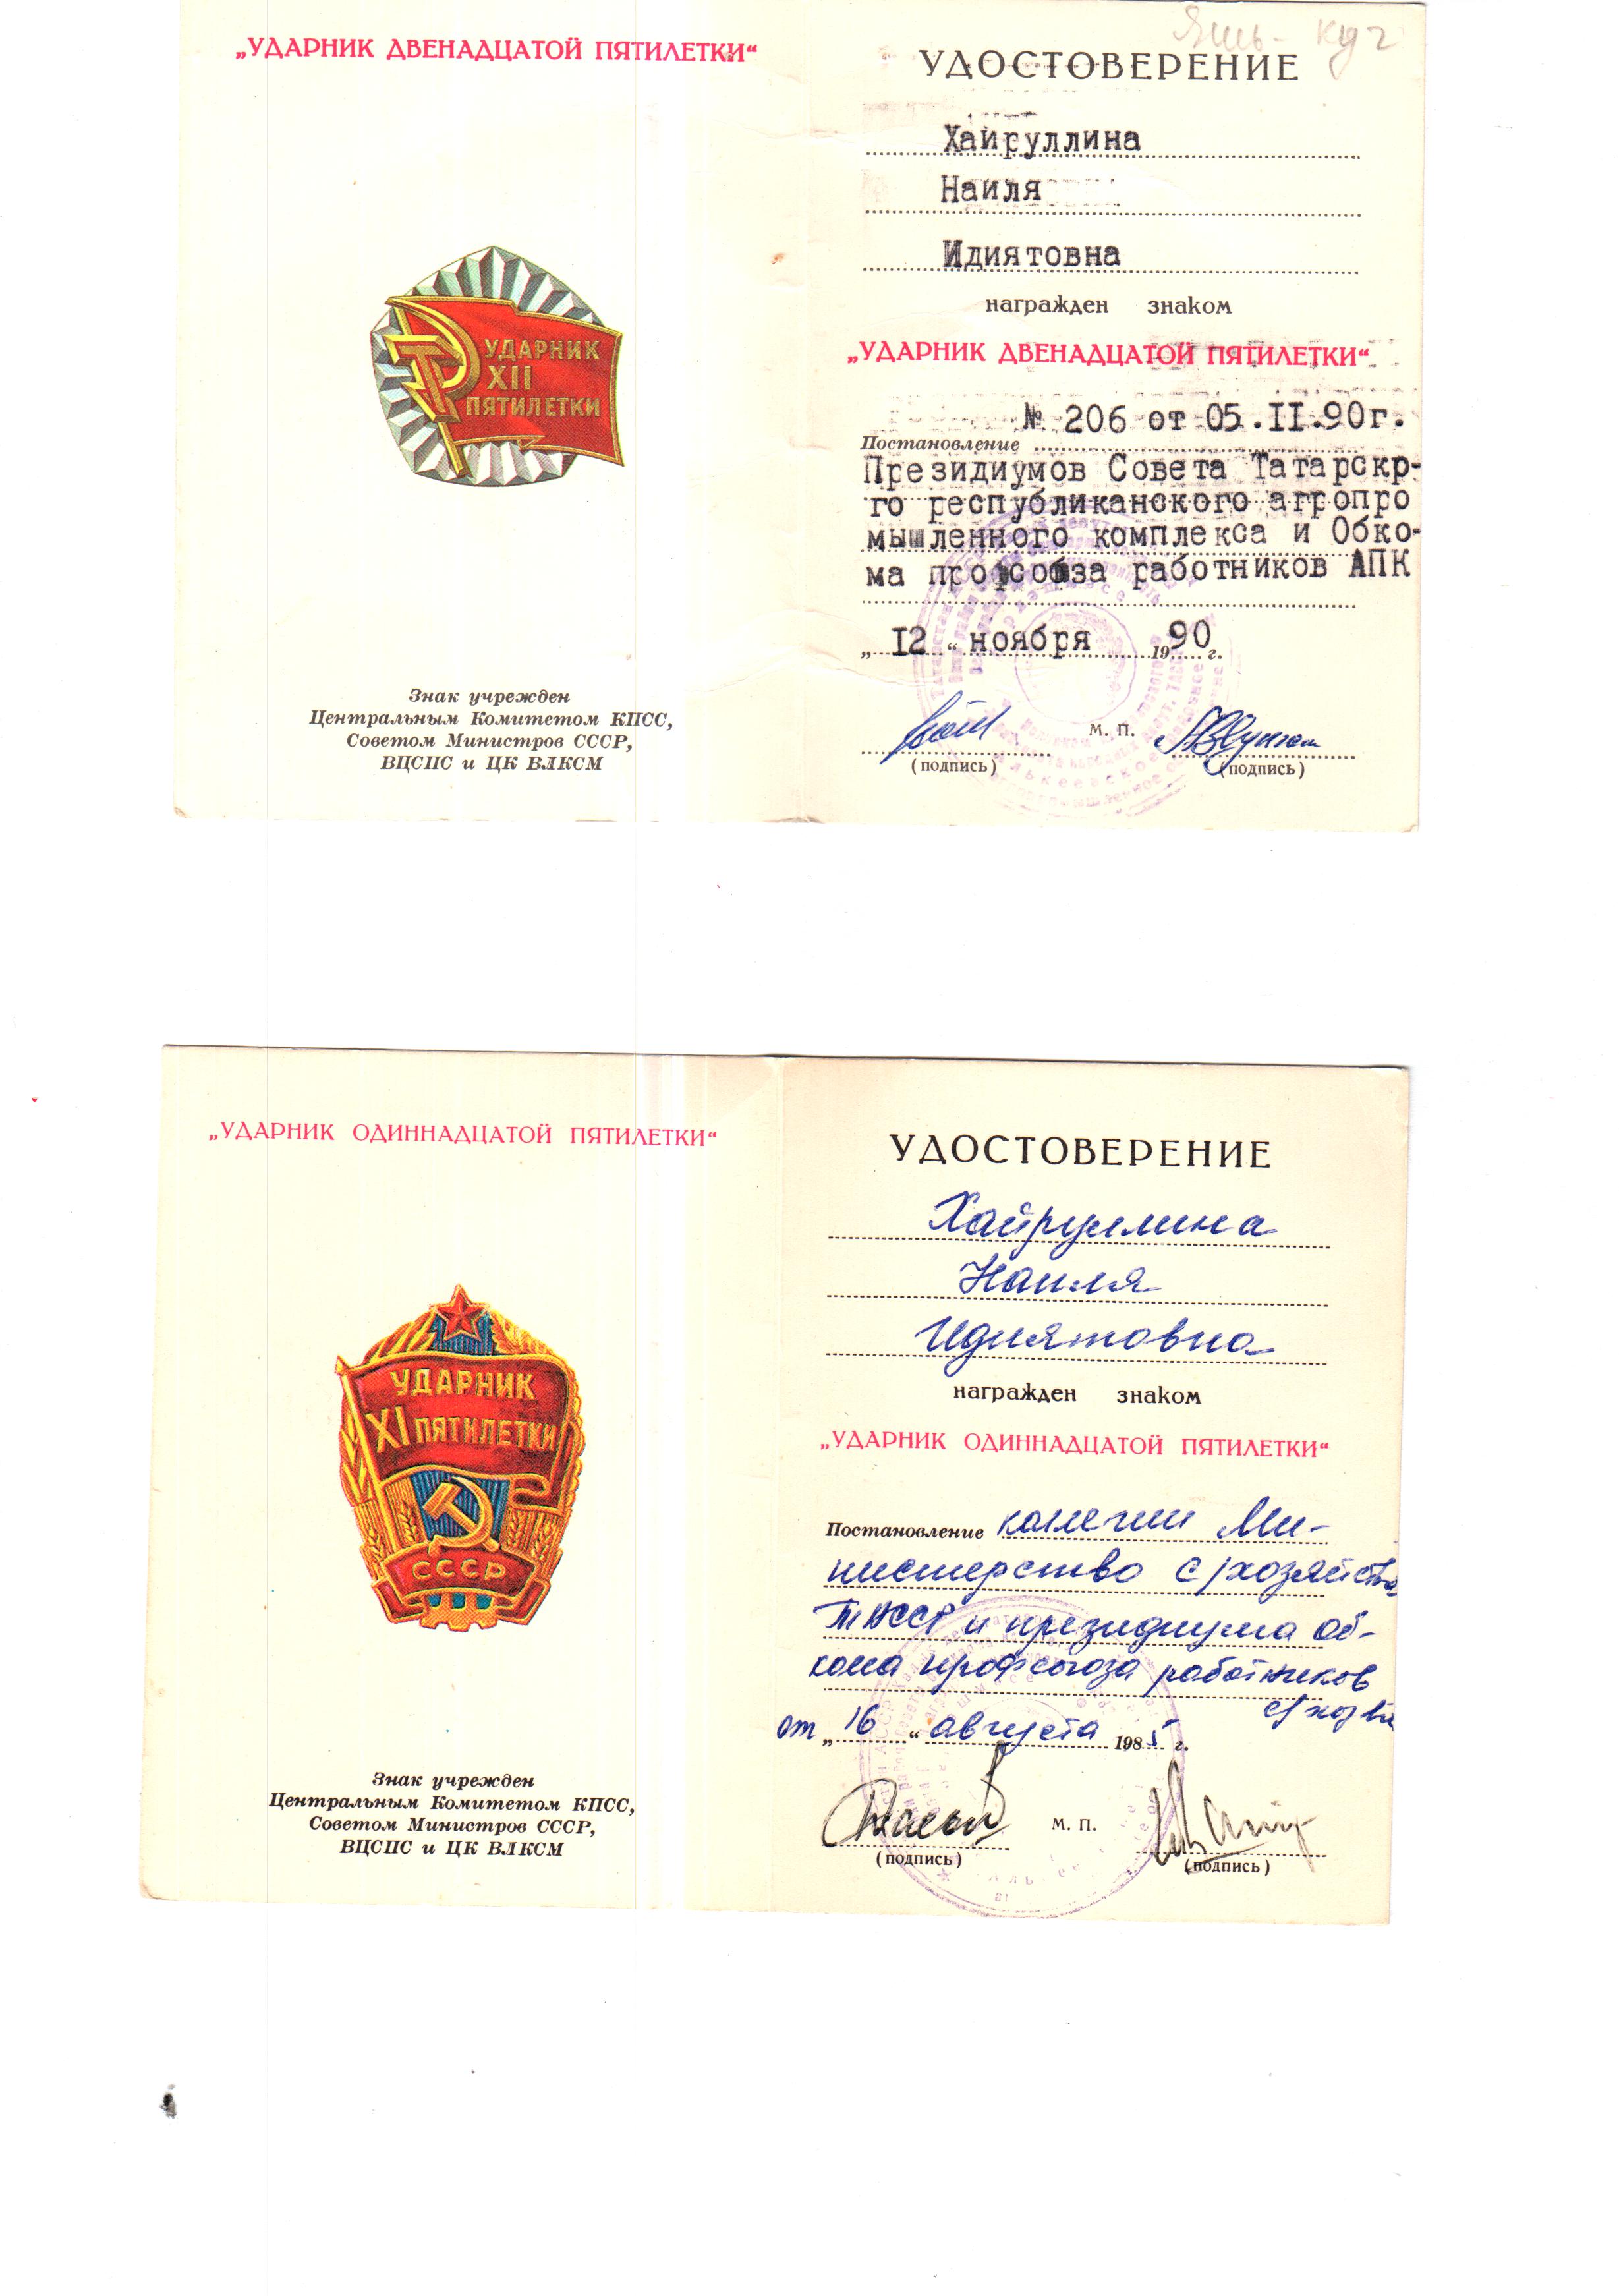 „УДАРНИК ДВЕНАДЦАТОЙ ПЯТИЛЕТКИ“
УДАРНИК
XII
ПЯТИЛЕТКИ
Знак учрежден
Центральным Комитетом КПСС,
Советом Министров СССР,
ВЦСПС и ЦК ВЛКСМ
УДОСТОВЕРЕНИЕ
Хайруллина
Наиля
Идиятовна
награжден знаком
„УДАРНИК ДВЕНАДЦАТОЙ ПЯТИЛЕТКИ“
№ 206 от 05.II.90г.
Постановление
Президиумов Совета Татарскр-
го республиканского агропро
мышленного комплекса и Обко-
ма профсоюза работников АПК
„ I2 “ ноября 1990 г.
М. П.
(подпись) (подпись)
„УДАРНИК ОДИННАДЦАТОЙ ПЯТИЛЕТКИ“
УДАРНИК
XI ПЯТИЛЕТКИ
СССР
Знак учрежден
Центральным Комитетом КПСС,
Советом Министров СССР,
ВЦСПС и ЦК ВЛКСМ
УДОСТОВЕРЕНИЕ
Хайруллина
Наиля
Идиятовна
награжден знаком
„УДАРНИК ОДИННАДЦАТОЙ ПЯТИЛЕТКИ“
Постановление коллегии Ми-
нистерство с/хозяйства
ТАССР и президиума об-
кома профсоюза работников
с/хозва
от „ 16 “ августа 1985 г.
М. П.
(подпись) (подпись)